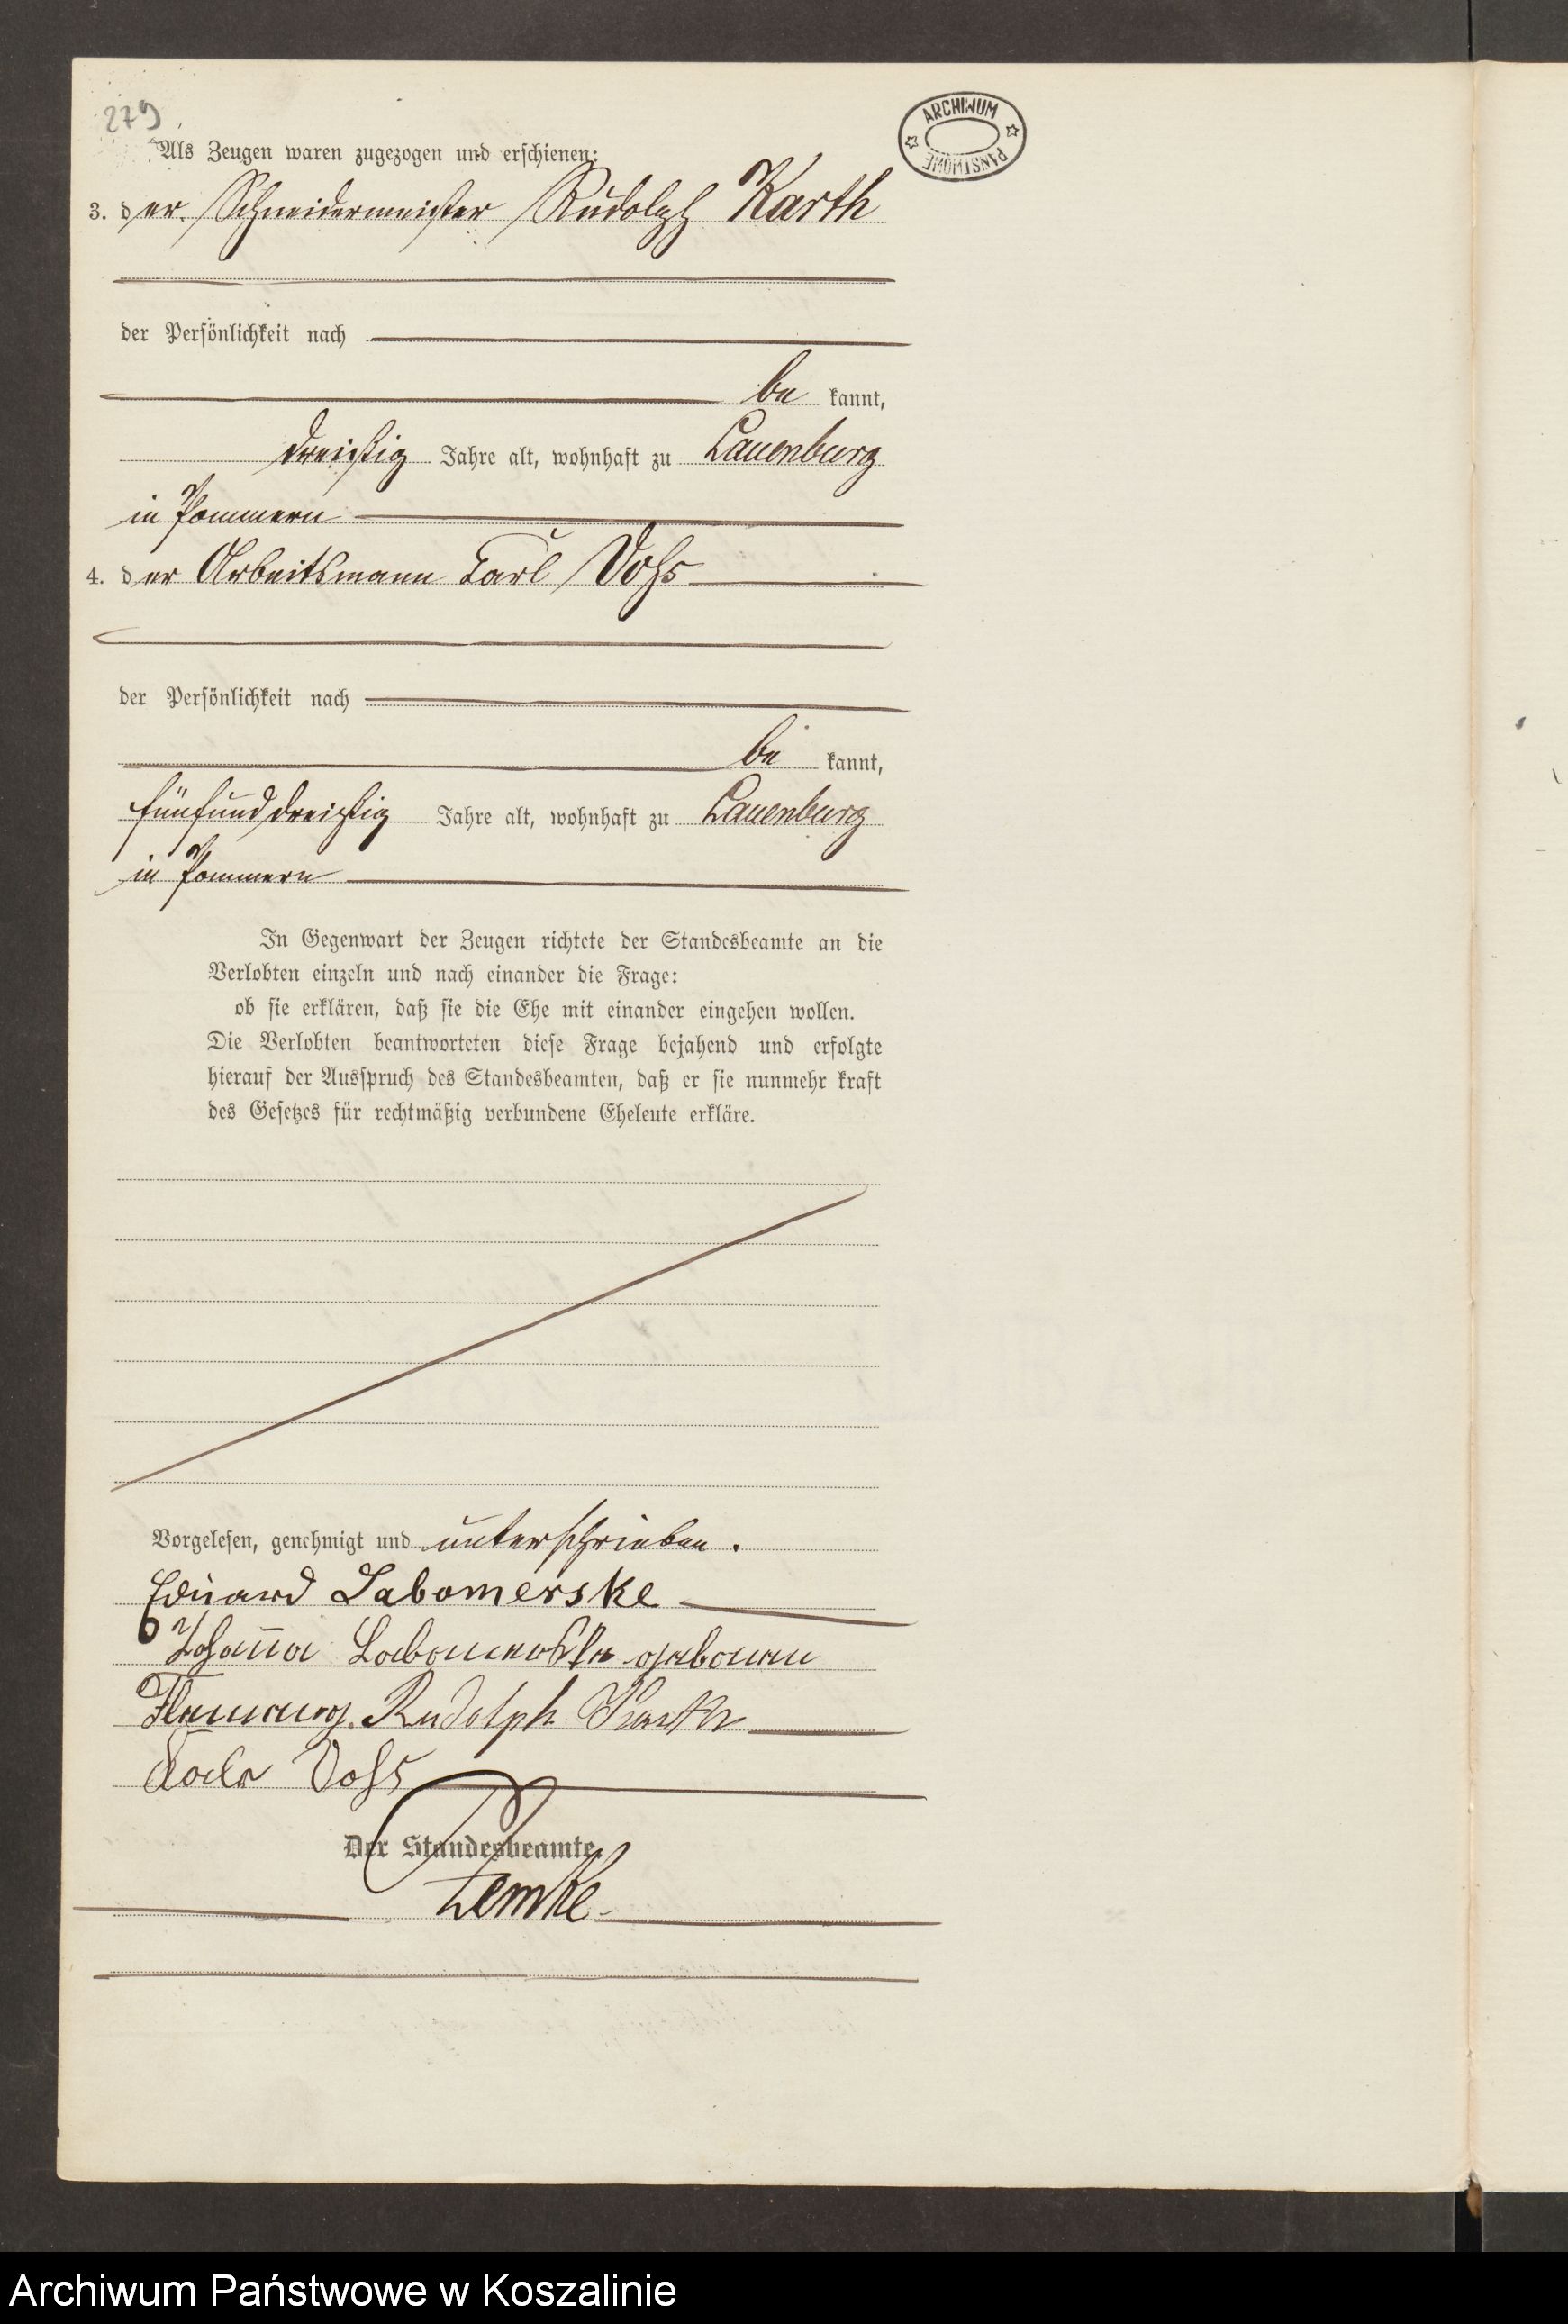 279
Als Zeugen waren zugezogen und erschienen:
3. der Schneidermeister Rudolph Karth
der Persönlichkeit nach
be kannt,
dreißig Jahre alt, wohnhaft zu Lauenburg
in Pommern
4. der Arbeitsmann Carl Voß
der Persönlichkeit nach
be kannt,
fünfunddreißig Jahre alt, wohnhaft zu Lauenburg
in Pommern
In Gegenwart der Zeugen richtete der Standesbeamte an die
Verlobten einzeln und nach einander die Frage:
ob sie erklären, daß sie die Ehe mit einander eingehen wollen.
Die Verlobten beantworteten diese Frage bejahend und erfolgte
hierauf der Ausspruch des Standesbeamten, daß er sie nunmehr kraft
des Gesetzes für rechtmäßig verbundene Eheleute erkläre.
Vorgelesen, genehmigt und unterschrieben.
Eduard Labomerske
Johanna Labomerske geboren
Flemming. Rudolph Karth
Voß
Der Standesbeamte
Lemke
ARCHIWUM PAŃSTWOWE
Archiwum Państwowe w Koszalinie